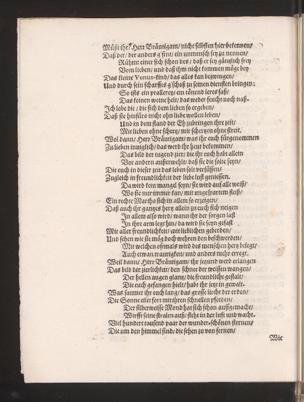 Müst ihr Herr Bräutigam/ nicht selbsten hier bekennen/
Daß der/ der anders g'sint/ ein unmensch sey zu nennen/
Rühme einer sich schon des/ daß er sey gäntzlich frey
Vom lieben/ und daß ihn nicht kommen möge bey
Das kleine Venus-kind/ das alles kan bezwingen/
Und durch sein scharffes g'schoß zu seinen diensten bringen;
So ists ein prallerey/ ein
Das keinen wenicheln/ das weder feucht noch naß.
Ich lobe die/ die sich dem lieben so ergeben/
Daß sie hinführo nicht ohn liebe wollen leben/
Und in dem stand der Eh zubringen ihre zeit/
Mit lieben ohne schertz/ mit schertzen ohne streit.
Wol dann/ Herr Bräutigam/ was ihr euch fürgenommen
Zu lieben inniglich/ das werd ihr heut bekommen/
Das bild der tugend zier/ die ihr euch habt allein
Vor andern außerwehlt/ daß sie die seine seyn/
Die euch in dieser zeit das leben solt versüssen/
Zugleich in freundlichkeit der liebe lust geniessen.
Da wird kein mangel seyn/ sie wird auf alle weiß/
Wo sie nur immer kan/ mit ungespartem fleiß/
Ein rechte Martha sich in allem so erzeigen/
Daß auch ihr gantzes hertz allein zu euch sich neigen
In allem also wird/ wann ihr der sorgen last
In ihre arm legt hin/ da wird sie seyn gefast
Mit aller freundlichkeit/ mit lieblichen geberden/
Und sehen wie sie mög doch wehren den beschwerden/
Mit welchen oftmals wird das menschlich leben belegt/
Auch etwan traurigkeit/ und anders nicht erregt.
Weil dann/ Herr Bräutigam/ ihr jetzund werd erlangen
Das bild der zierlichkeit/ den schnee der weissen wangen/
Der hellen augen glantz/ die freundliche gestalt/
Die euch gefangen hielt/ habt ihr jetzt in gewalt.
Was saumet ihr euch lang/ das grosse liecht der erden/
Die Sonne eilet fort mit ihren schnellen pferden/
Der silberweisse Mond hat sich schon aufgemacht/
Wirfft seine stralen auß/ steht in der lufft und wacht.
Viel hundert tausend paar der wunder-schönen sternen/
Die um den himmel sind/ die sehen zu von fernen/
Mit